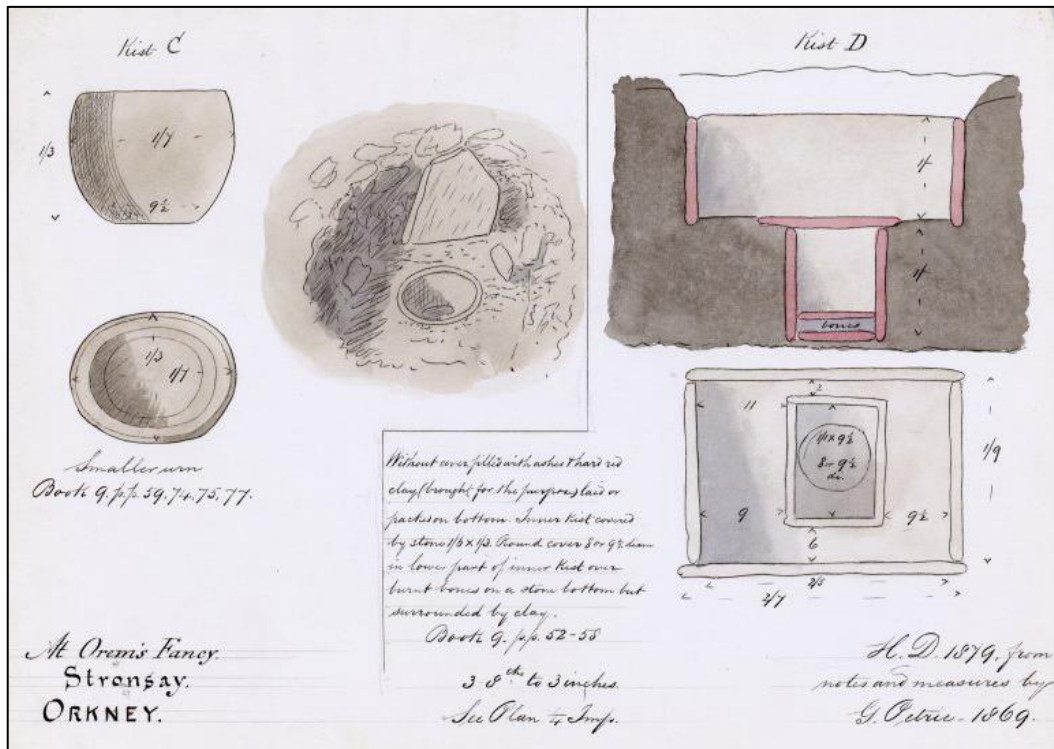 Kist C
1/3
1/7
9½
1/3
1/7
Smaller urn
Book 9. p.p. 59. 74. 75. 77.
Without cover filled with ashes & hard red
clay (brought for the purpose) laid or
packed on bottom. Inner Kist covered
by stone 1/5 x 1/3. Round cover 8 or 9½ diam
in lower part of inner Kist over
burnt bones on a stone bottom but
surrounded by clay.
Book 9. p.p. 52-58
3-8ths to 3 inches.
See Plan ¼ Imp.
Kist D
bones
2
11
9½
8 or 9½
di.
9
9½
6
1/9
2/5
2/7
At Orem's Fancy.
Stronsay.
ORKNEY.
H. D. 1879. from
notes and measures by
G. Petrie - 1869.